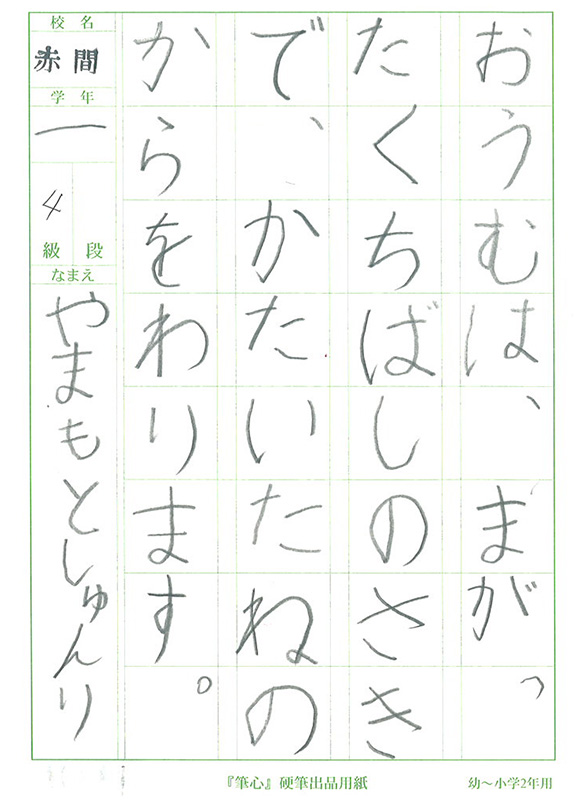 おうむは、まがっ
たくちばしのさき
で、かたいたねの
からをわります。
校名
赤間
学年
一
4
級 段
なまえ
やまもとしゅんり
『筆心』硬筆出品用紙
幼〜小学2年用